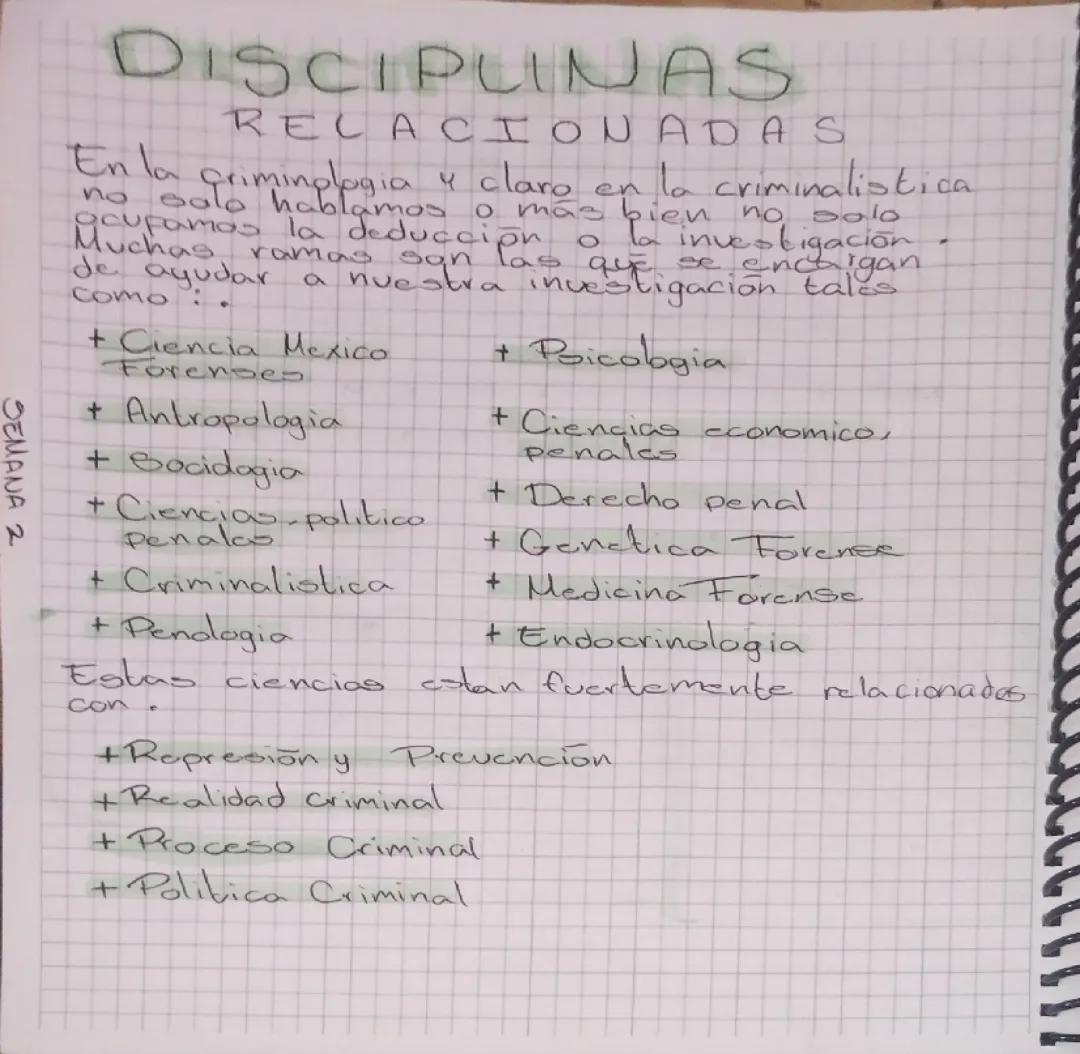 DISCIPLINAS
RELACIONADAS
En la criminologia y claro en la criminalistica
no solo hablamos o más bien no solo
ocupamos la deducción o la investigación.
Muchas ramas son las que se encargan
de ayudar a nuestra investigación tales
como :.
+ Ciencia Mexico
Forenses
+ Antropologia
+ Sociologia
+ Ciencias-politico
penales
+ Criminalistica
+ Penologia
+ Psicologia
+ Ciencias economico,
penales
+ Derecho penal
+ Genetica Forense
+ Medicina Forense
+ Endocrinologia
Estas ciencias estan fuertemente relacionadas
con.
+ Represión y Prevención
+ Realidad criminal
+ Proceso Criminal
+ Politica Criminal
SEMANA 2